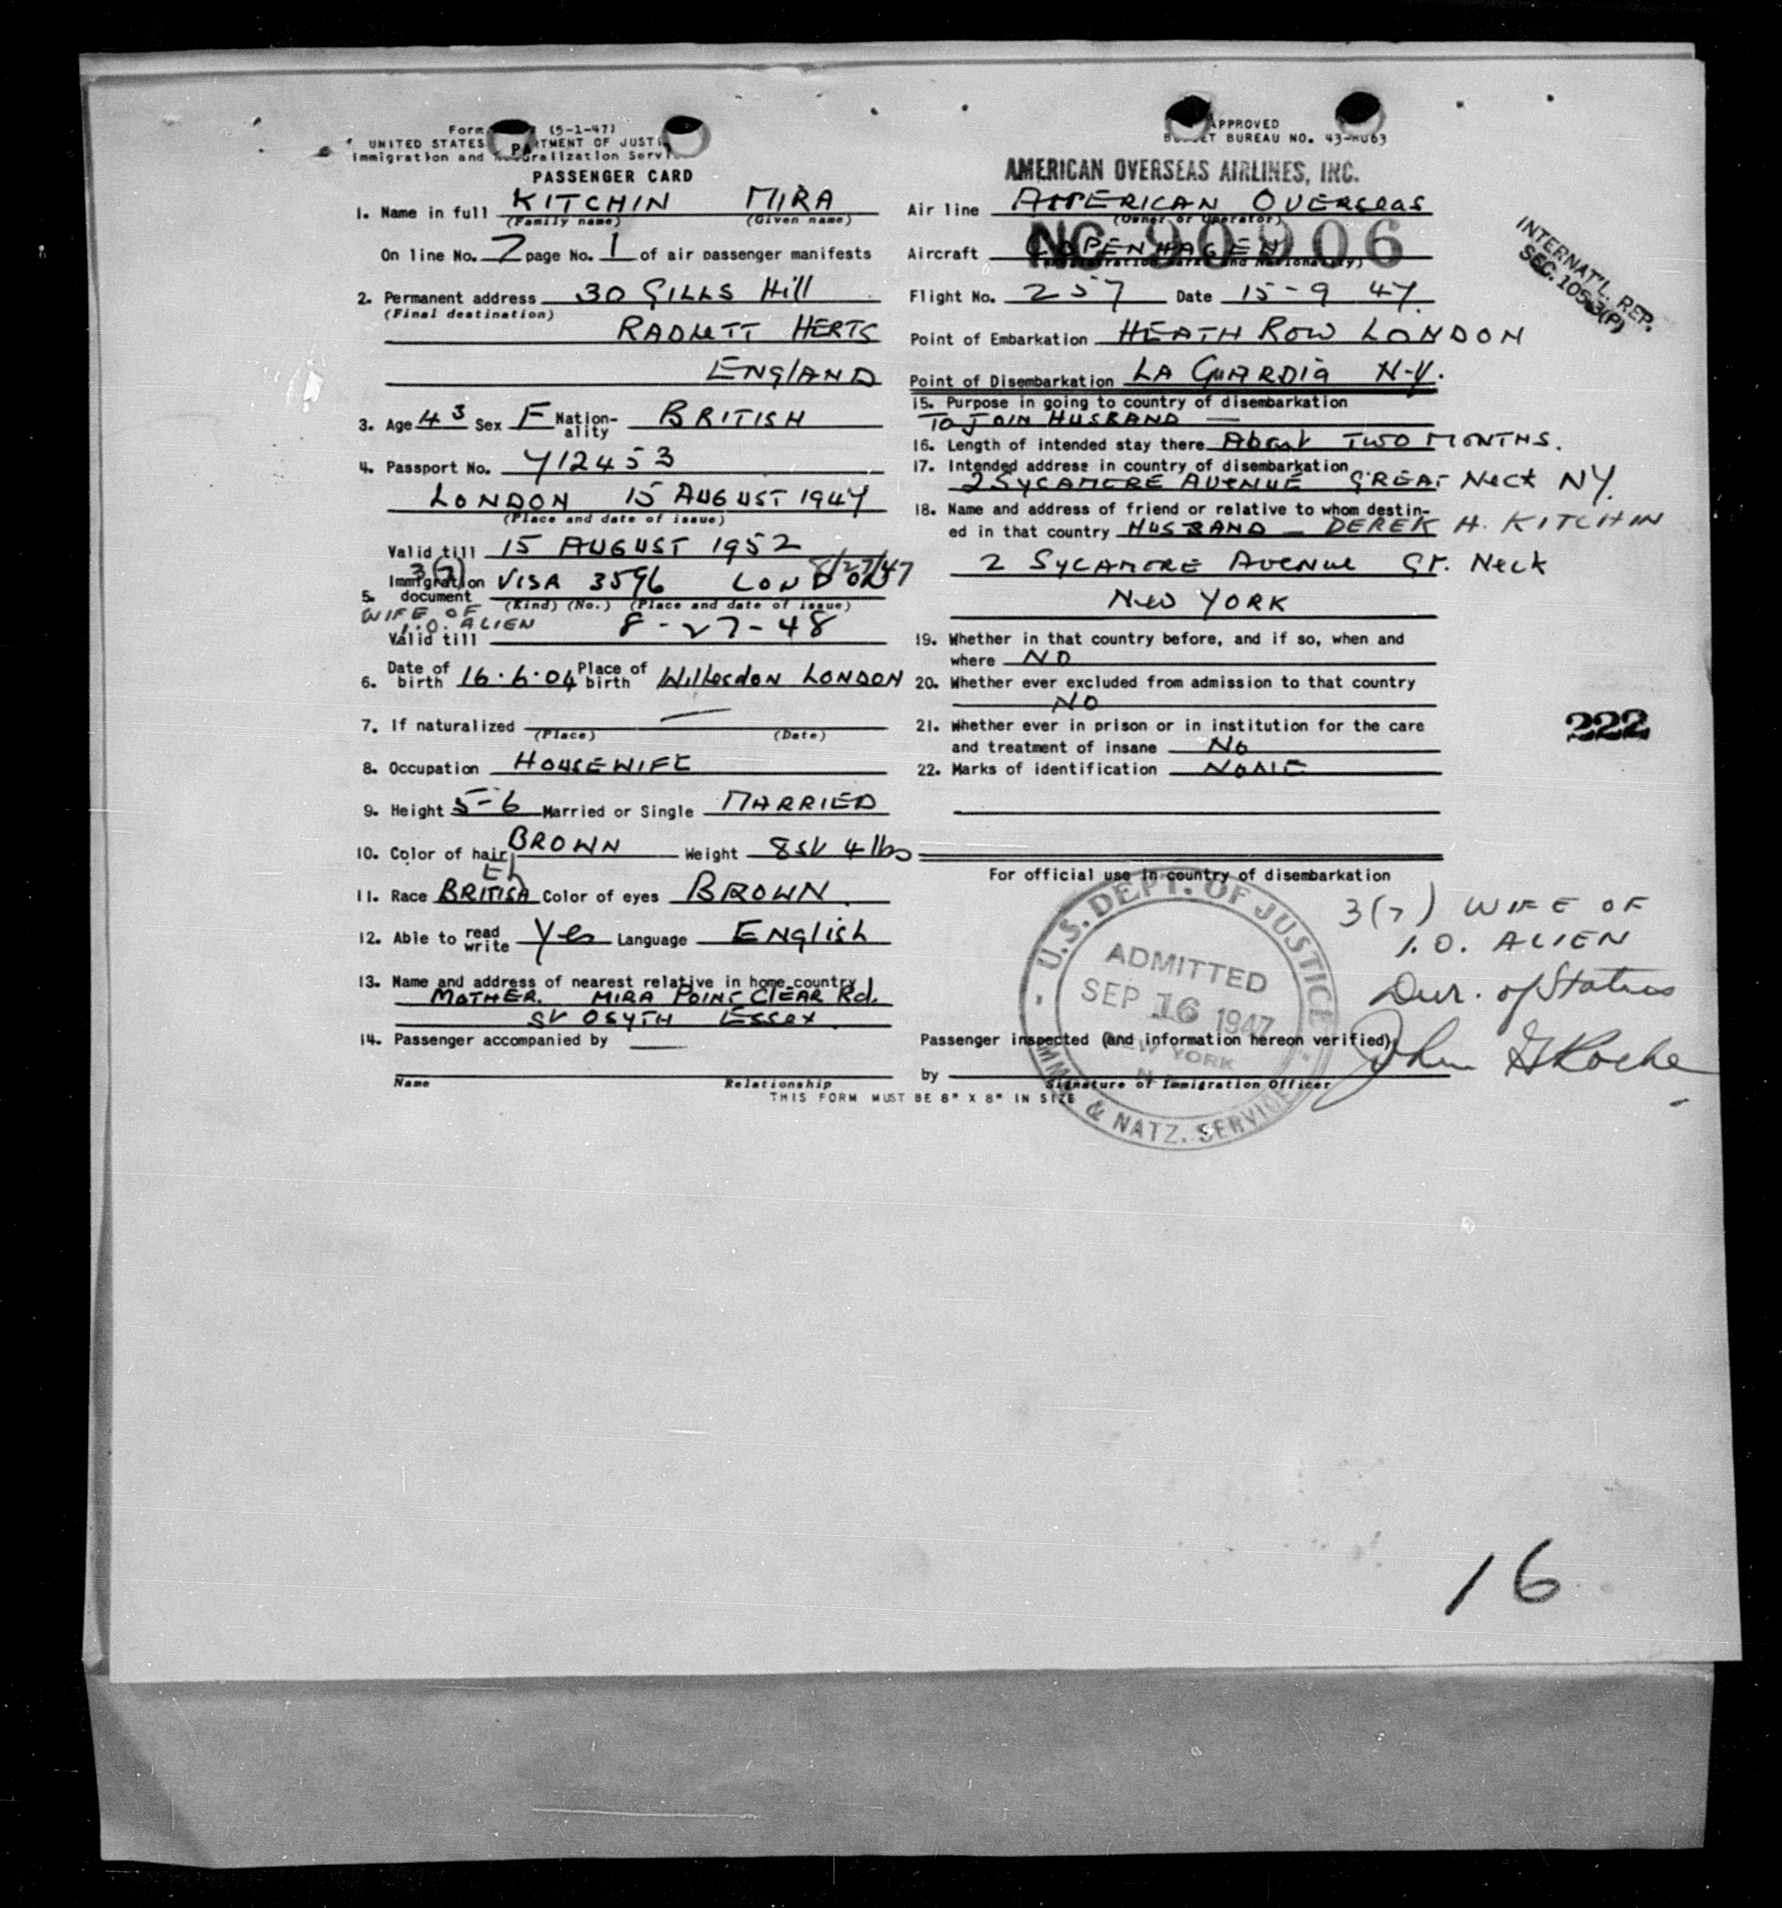 Form (5-1-47)
UNITED STATES DEPARTMENT OF JUSTICE
Immigration and Naturalization Service
PASSENGER CARD
1. Name in full KITCHIN MIRA
(Family name) (Given name)
On line No. 7 page No. 1 of air passenger manifests
2. Permanent address 30 GILLS Hill
(Final destination)
RADLETT HERTS
ENGLAND
3. Age 43 Sex F Nation-ality BRITISH
4. Passport No. 412453
LONDON 15 AUGUST 1947
(Place and date of issue)
Valid till 15 AUGUST 1952
3(7) 8/27/47
5. Immigration document VISA 3596 LONDON
(Kind) (No.) (Place and date of issue)
WIFE OF
I.O. ALIEN
Valid till 8-27-48
6. Date of birth 16.6.04 Place of birth Willesdon LONDON
7. If naturalized —
(Place) (Date)
8. Occupation HOUSEWIFE
9. Height 5-6 Married or Single MARRIED
10. Color of hair BROWN Weight 8 st 4 lbs
11. Race BRITISH Color of eyes BROWN
12. Able to read write Yes Language ENGLISH
13. Name and address of nearest relative in home country
MOTHER. MIRA POINT CLEAR Rd.
St OSYTH Essex.
14. Passenger accompanied by —
Name Relationship
THIS FORM MUST BE 8" X 8" IN SIZE
APPROVED
BUDGET BUREAU NO. 43-R063
AMERICAN OVERSEAS AIRLINES, INC.
Air line AMERICAN OVERSEAS
(Owner or Operator)
Aircraft COPENHAGEN NC 90906
(Registration Marks and Nationality)
Flight No. 257 Date 15-9 47.
Point of Embarkation HEATH ROW LONDON
Point of Disembarkation LA GUARDIA N-Y.
15. Purpose in going to country of disembarkation
TO JOIN HUSBAND —
16. Length of intended stay there About TWO MONTHS.
17. Intended address in country of disembarkation
2 SYCAMORE AVENUE GREAT NECK NY.
18. Name and address of friend or relative to whom destin-
ed in that country HUSBAND — DEREK H. KITCHIN
2 SYCAMORE AVENUE GT. NECK
NEW YORK
19. Whether in that country before, and if so, when and
where NO
20. Whether ever excluded from admission to that country
NO
21. Whether ever in prison or in institution for the care
and treatment of insane No
22. Marks of identification NONE
For official use in country of disembarkation
3(7) WIFE OF
I.O. ALIEN
Dur. of Status
U.S. DEPT. OF JUSTICE
ADMITTED
SEP 16 1947
NEW YORK
N.Y.
IMM. & NATZ. SERVICE
Passenger inspected (and information hereon verified)
by John G Roche
Signature of Immigration Officer
INTERNAT'L. REP.
SEC. 105.3(P)
222
16